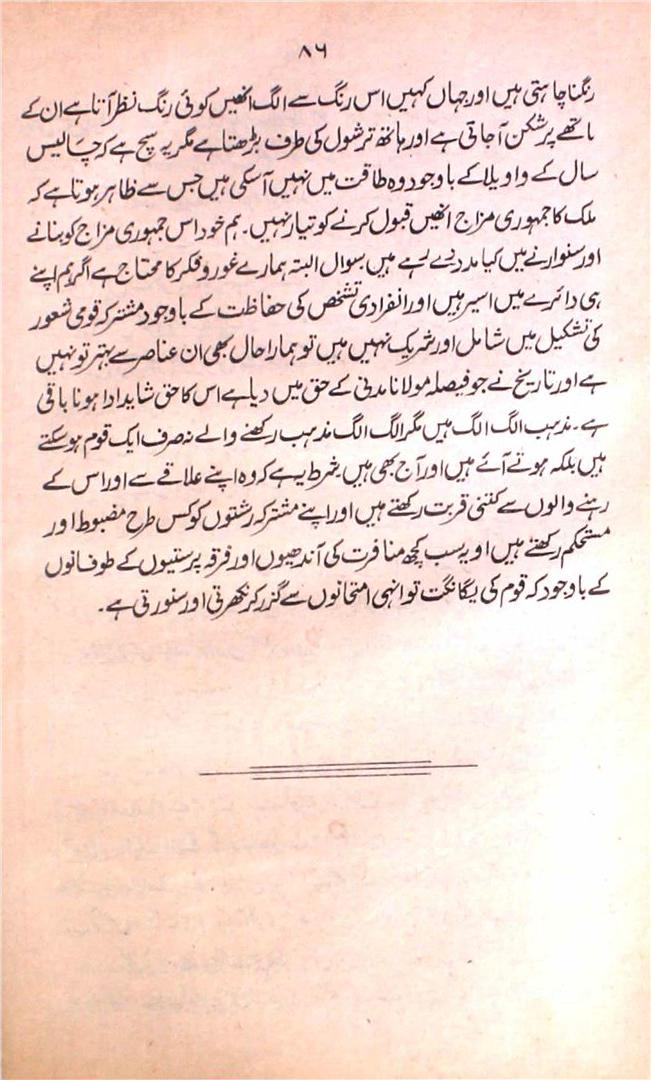 ۸۶
رنگنا چاہتی ہیں اور جہاں کہیں اس رنگ سے الگ انھیں کوئی رنگ نظر آتا ہے ان کے
ماتھے پر شکن آجاتی ہے اور ہاتھ ترشول کی طرف بڑھتا ہے مگر یہ سچ ہے کہ چالیس
سال کے واویلا کے باوجود وہ طاقت میں نہیں آسکی ہیں جس سے ظاہر ہوتا ہے کہ
ملک کا جمہوری مزاج انھیں قبول کرنے کو تیار نہیں۔ ہم خود اس جمہوری مزاج کو بنانے
اور سنوارنے میں کیا مدد دے رہے ہیں یہ سوال البتہ ہمارے غور و فکر کا محتاج ہے اگر ہم اپنے
ہی دائرے میں اسیر ہیں اور انفرادی تشخص کی حفاظت کے باوجود مشترکہ قومی شعور
کی تشکیل میں شامل اور شریک نہیں ہیں تو ہمارا حال بھی ان عناصر سے بہتر تو نہیں
ہے اور تاریخ نے جو فیصلہ مولانا مدنی کے حق میں دیا ہے اس کا حق شاید ادا ہونا باقی
ہے۔ مذہب الگ الگ ہیں مگر الگ الگ مذہب رکھنے والے نہ صرف ایک قوم ہوسکتے
ہیں بلکہ ہوتے آئے ہیں اور آج بھی ہیں شرط یہ ہے کہ وہ اپنے علاقے سے اور اس کے
رہنے والوں سے کتنی قربت رکھتے ہیں اور اپنے مشترکہ رشتوں کو کس طرح مضبوط اور
مستحکم رکھتے ہیں اور یہ سب کچھ منافرت کی آندھیوں اور فرقہ پرستیوں کے طوفانوں
کے باوجود کہ قوم کی یگانگت تو انہی امتحانوں سے گزر کر نکھرتی اور سنورتی ہے۔